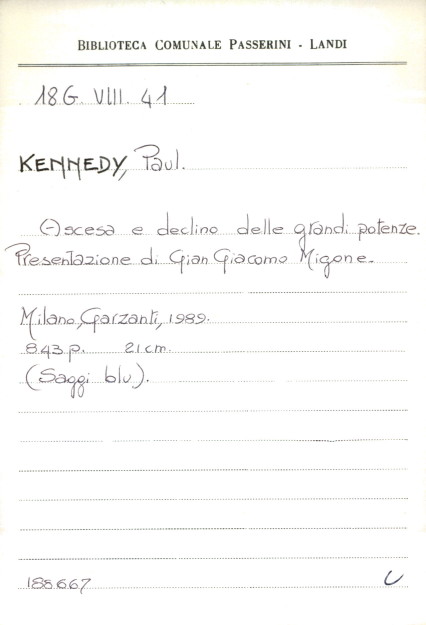 BIBLIOTECA COMUNALE PASSERINI - LANDI
18G. VIII. 41
KENNEDY, Paul.
Ascesa e declino delle grandi potenze.
Presentazione di Gian Giacomo Migone.
Milano, Garzanti, 1989.
843 p. 21 cm.
(Saggi blu).
188667
U